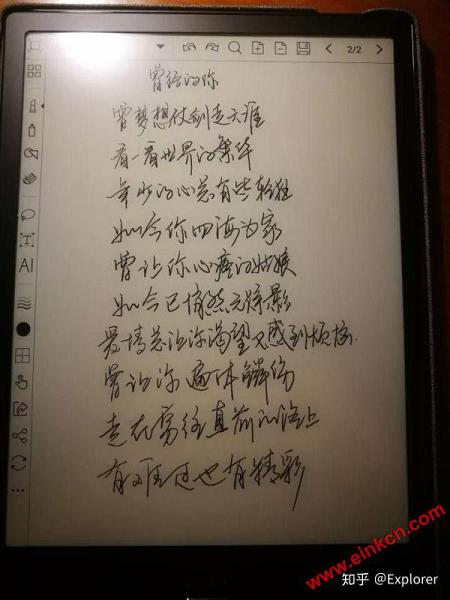 2/2
曾经的你
曾梦想仗剑走天涯
看一看世界的繁华
年少的心总有些轻狂
如今你四海为家
曾让你心疼的姑娘
如今已悄然无踪影
爱情总让你渴望又感到烦恼
曾让你遍体鳞伤
走在勇往直前的路上
有难过也有精彩
T
AI
www.einkcn.com
知乎 @Explorer